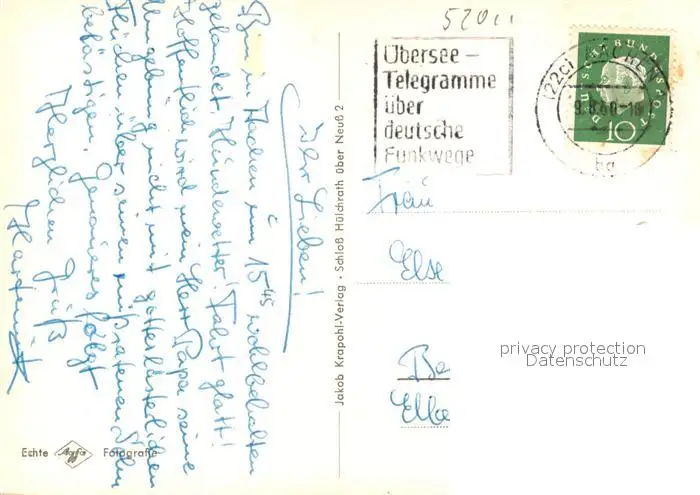 Ihr Lieben!
Bin in Aachen um 15⁴⁵ wohlbehalten
gelandet. Hundewetter! Fahrt glatt!
Hoffentlich wird mein Herr Papa seine
Umgebung nicht mit gotteslästerlichen
Flüchen über seinen mißratenen Sohn
belästigen. Genaueres folgt
Herzlichen Gruß
Hartmut
Echte Agfa Fotografie
Jakob Krapohl-Verlag · Schloß Hülchrath über Neuß 2
5201
Übersee-
Telegramme
über
deutsche
Funkwege
(22c) AACHEN
9.8.60-18
bg
DEUTSCHE BUNDESPOST
10
Frau
Else
Be
Elbe
privacy protection
Datenschutz